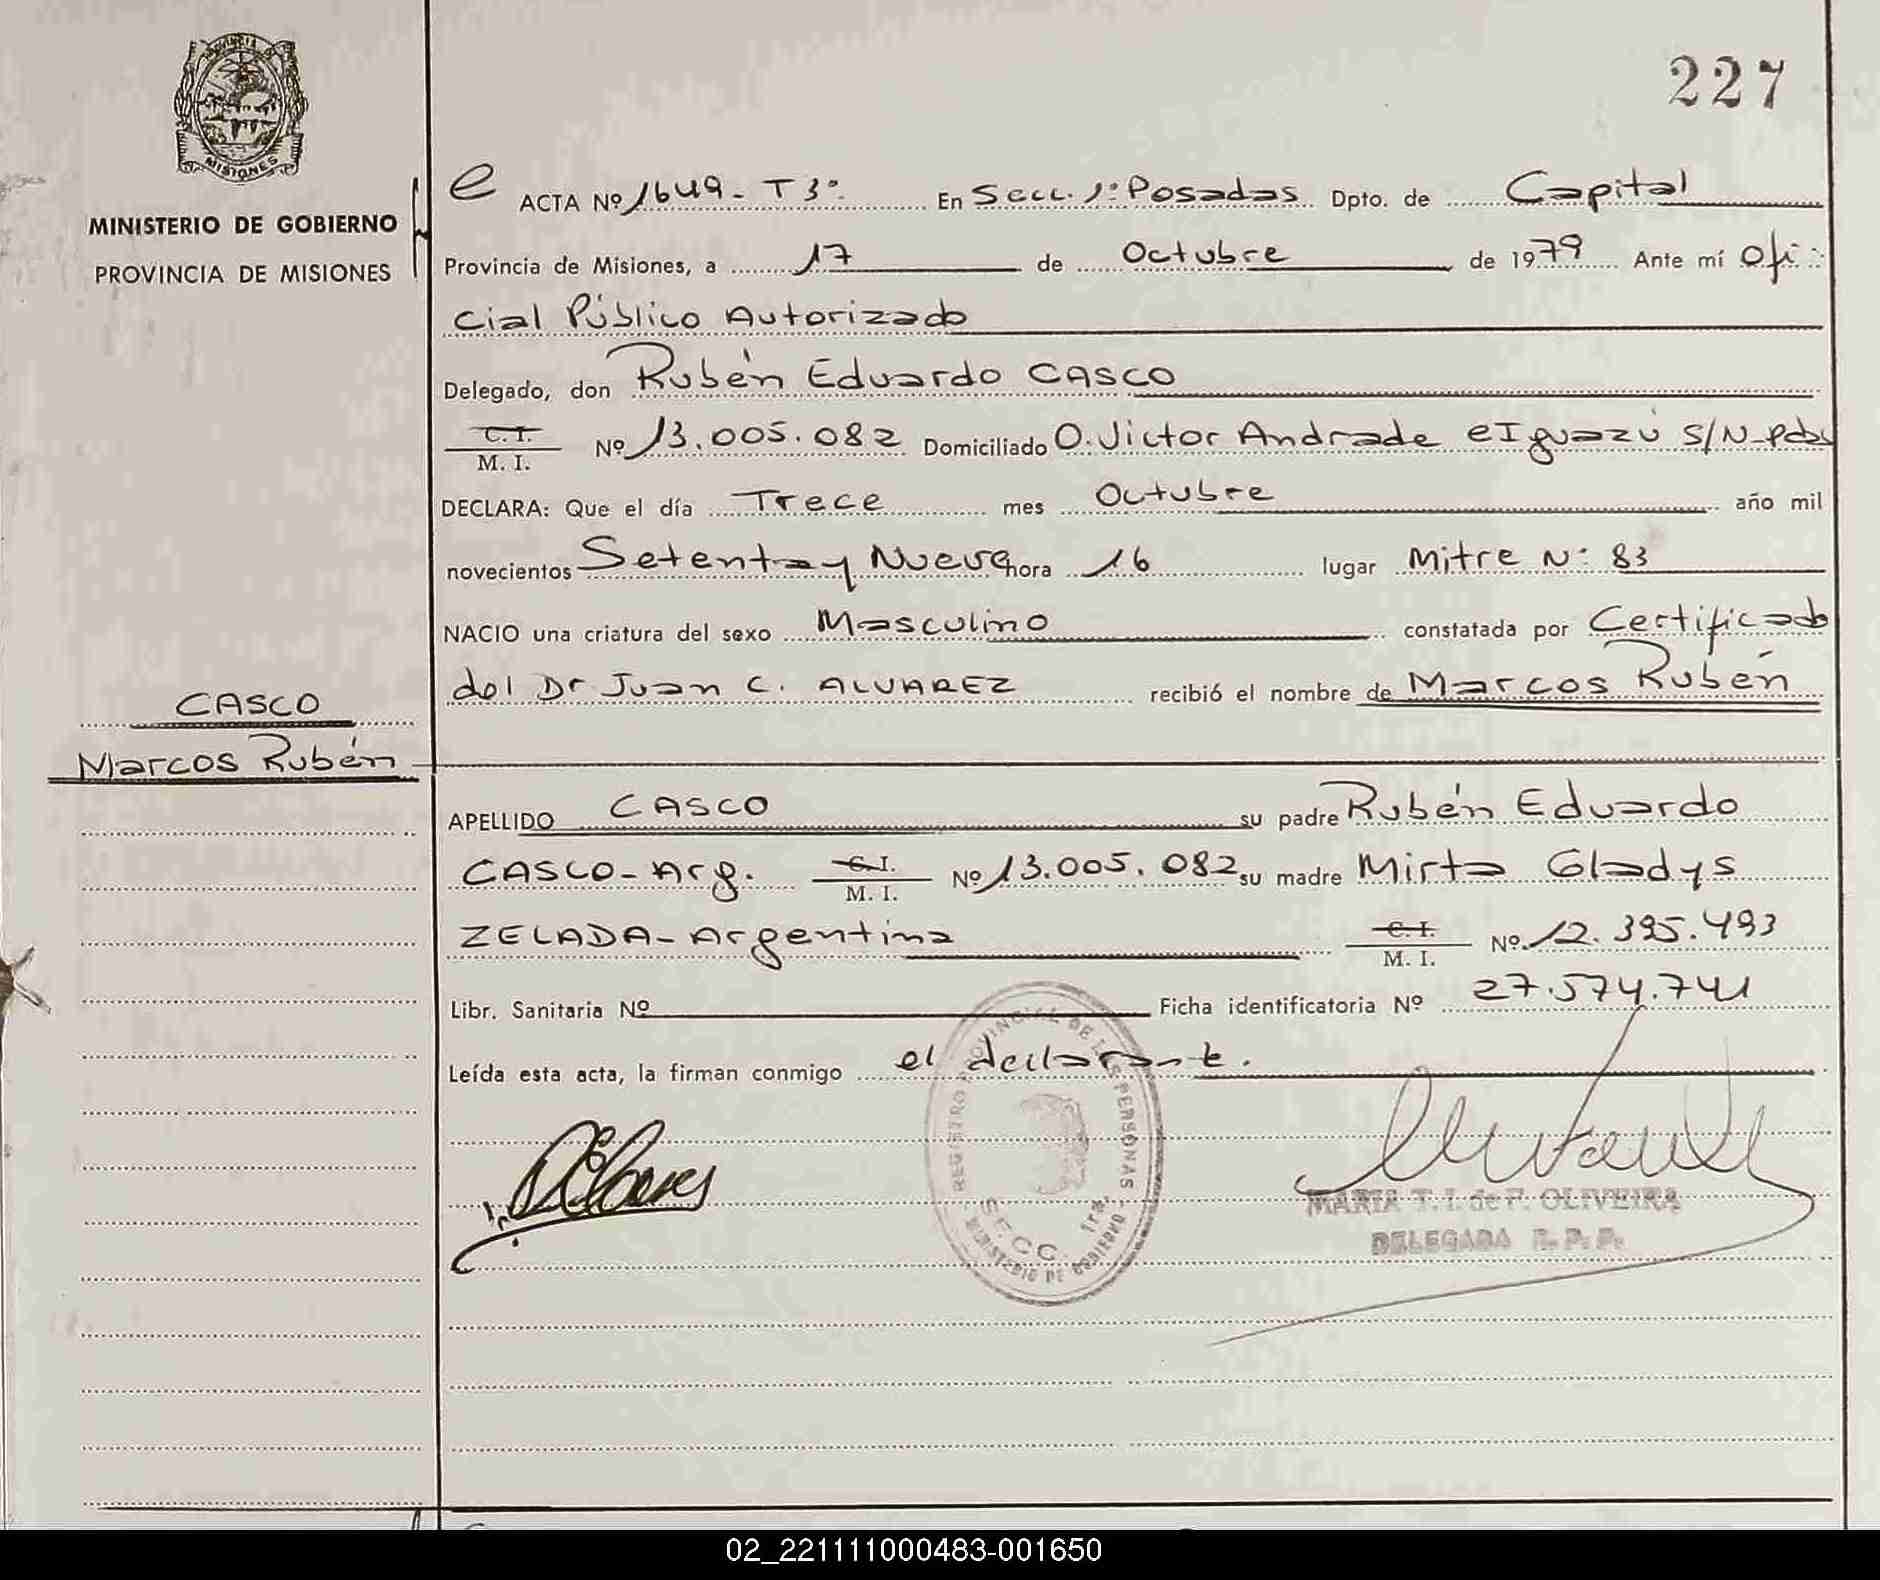 227
PROVINCIA DE
MISIONES
MINISTERIO DE GOBIERNO
PROVINCIA DE MISIONES
e ACTA Nº 1649 - T 3º En Secc. 1ª Posadas Dpto. de Capital
Provincia de Misiones, a 17 de Octubre de 1979 Ante mí Ofi
cial Público Autorizado
Delegado, don Rubén Eduardo CASCO
C. I. / M. I. Nº 13.005.082 Domiciliado O. Victor Andrade e Iguazú S/N-Pdas
DECLARA: Que el día Trece mes Octubre año mil
novecientos Setenta y Nueve hora 16 lugar Mitre Nº 83
NACIO una criatura del sexo Masculino constatada por Certificado
del Dr Juan C. ALVAREZ recibió el nombre de Marcos Rubén
CASCO
Marcos Rubén
APELLIDO CASCO su padre Rubén Eduardo
CASCO - Arg. C. I. / M. I. Nº 13.005.082 su madre Mirta Gladys
ZELADA - Argentina C. I. / M. I. Nº 12.395.493
Libr. Sanitaria Nº Ficha identificatoria Nº 27.574.741
Leída esta acta, la firman conmigo el declarante.
REGISTRO PROVINCIAL DE LAS PERSONAS
SECC. 1ra.
MINISTERIO DE GOBIERNO
MARIA T. I. de F. OLIVEIRA
DELEGADA R. P. P.
02_221111000483-001650